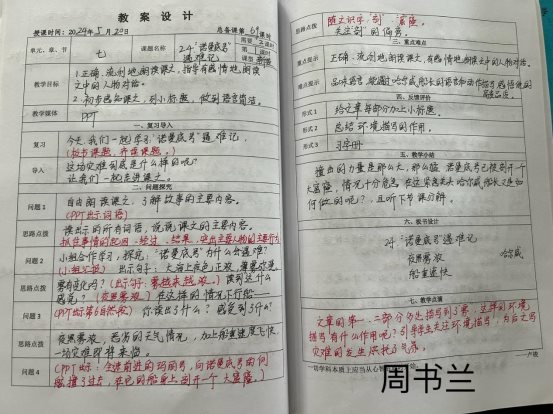 教案设计
授课时间：2024年5月20日
总备课第61课时
单元、章、节
七
课题名称
24.“诺曼底号”遇难记
课型
教学目标
1.正确、流利地朗读课文，指导有感情地朗读课文中的人物对话。
2.初步感知课文，列小标题，做到语言简洁。
教学媒体
PPT
一、复习导入
复习
今天，我们一起学习“诺曼底号”遇难记，
（板书课题，齐读课题。）
导入
这场灾难到底是什么样的呢？
让我们一起走进课文。
二、问题探究
问题1
自由朗读课文，了解故事的主要内容。
（PPT出示词语）
思路点拨
读出示的所有词语，说说课文的主要内容。
抓住事情的起因、经过、结果，突出主要人物的主要行为
问题2
小组合作学习，探究：“诺曼底号”为什么会遇难？
（小组交流）出示句子：大海上夜色正浓，薄雾弥漫。
思路点拨
雾有变化吗？（出示句子：雾越来越浓。）读到这什么
感觉？（夜黑雾浓）在这样的情况下行船
问题3
（PPT出示第5自然段）你读出了什么？感受到了什么？
思路点拨
夜黑雾浓，恶劣的天气情况，加上船重速度飞快，
一场灾难即将来临。
问题4
（PPT出示：全速前进的玛丽号，向诺曼底号的侧
舷撞了过去，在它的船身上剖开一个大窟窿）
思路点拨
随文识字：“剖”“窟窿”。
关注“剖”的偏旁。
三、重点难点
重点提示
正确、流利地朗读课文，有感情地朗读课文中的人物对话。
难点提示
四、反馈评价
形式1
给文章每部分加上小标题。
形式2
总结环境描写的作用。
形式3
习字册
五、教学小结
撞击的力量是那么大，那么猛，诺曼底号已被剖开一个
大窟窿，情况十分危急，在这紧急关头哈尔威船长又是如
何做的呢？，且听下节课分解。
六、板书设计
24.“诺曼底号”遇难记
夜黑雾浓
哈尔威
船重速快
七、教学点滴
文章的第一、二部分多处描写到了雾，这样的环境
描写有什么作用呢？引导学生关注环境描写，为后文写
灾难的发生烘托了气氛。
一切学科本质上应当从心智
卢梭
周书兰